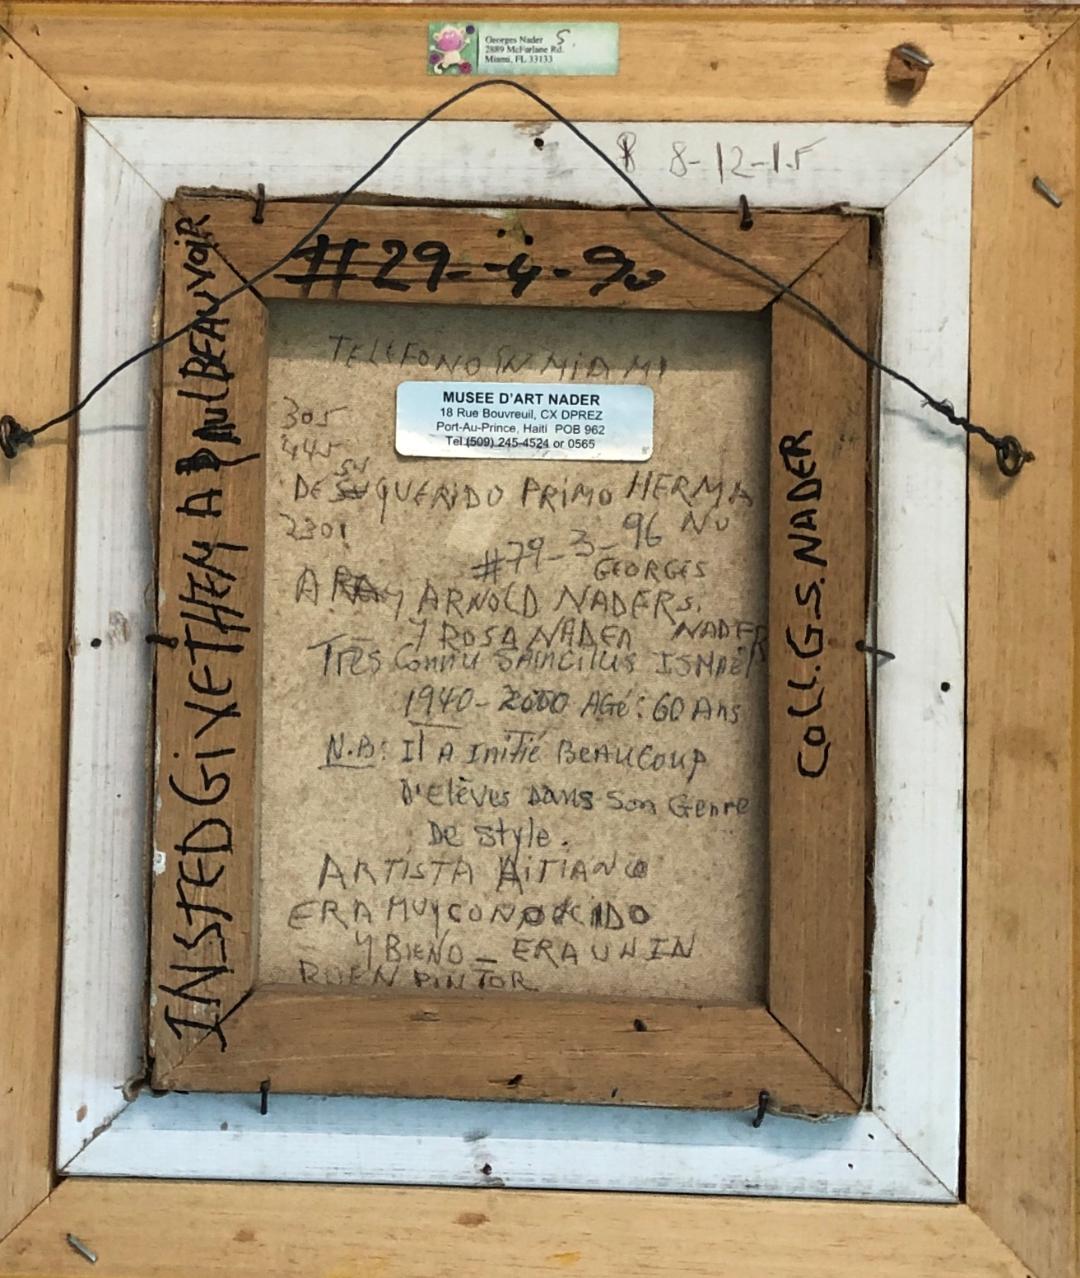 Georges Nader S.
2889 McFarlane Rd.
Miami, FL 33133
8-12-15
#29-4-90
INSTED GiVE THEM A PAUL BEAUVOiR
TELEFONO IN MiAMI
MUSEE D'ART NADER
18 Rue Bouvreuil, CX DPREZ
Port-Au-Prince, Haiti POB 962
Tel (509) 245-4524 or 0565
305
445
2301
DE SU QUERiDO PRiMO HERMA
NO
#79-3-96
GEORGES
A ARNOLD NADER S.
Y ROSA NADER NADER
Très Connu SAINCiLUS ISMAËL
1940-2000 AGé: 60 Ans
N.B: Il A Initié BEAUCoup
D'Elèves Dans Son Genre
De Style.
ARTISTA HAiTIANO
ERA MUY CONOCIDO
Y BIENO _ ERA UN IN
BUEN PINTOR
COLL. G.S. NADER